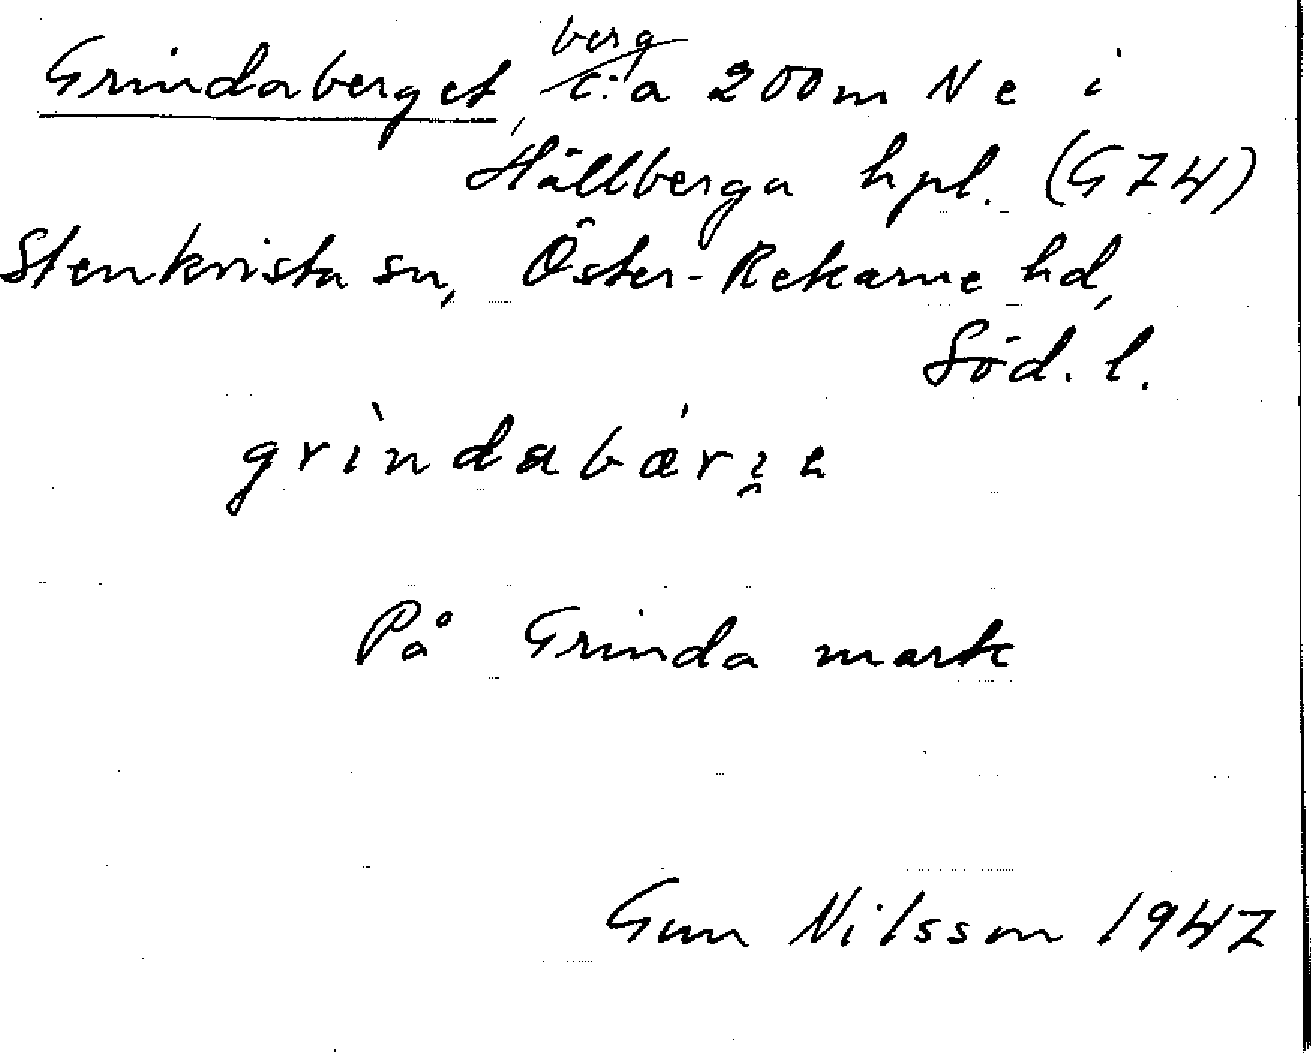 Grindaberget, berg c:a 200m N e i
Hällberga hpl. (G74)
Stenkvista sn, Öster-Rekarne hd,
Söd. l.
grìndabǽri̯e
På Grinda mark
Gun Nilsson 1947